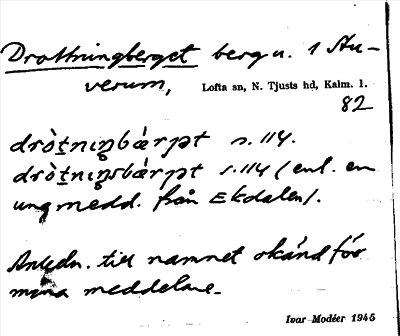 Drottningberget berg n. 1 Åu-
verum,
Lofta sn, N. Tjusts hd, Kalm. l.
82
drò̱tniŋbærjət s. 114.
drò̱tniŋsbærjət s. 114 (enl. en
ung medd. från Ekdalen).
Anledn. till namnet okänd för
mina meddelare.
Ivar Modéer 1945